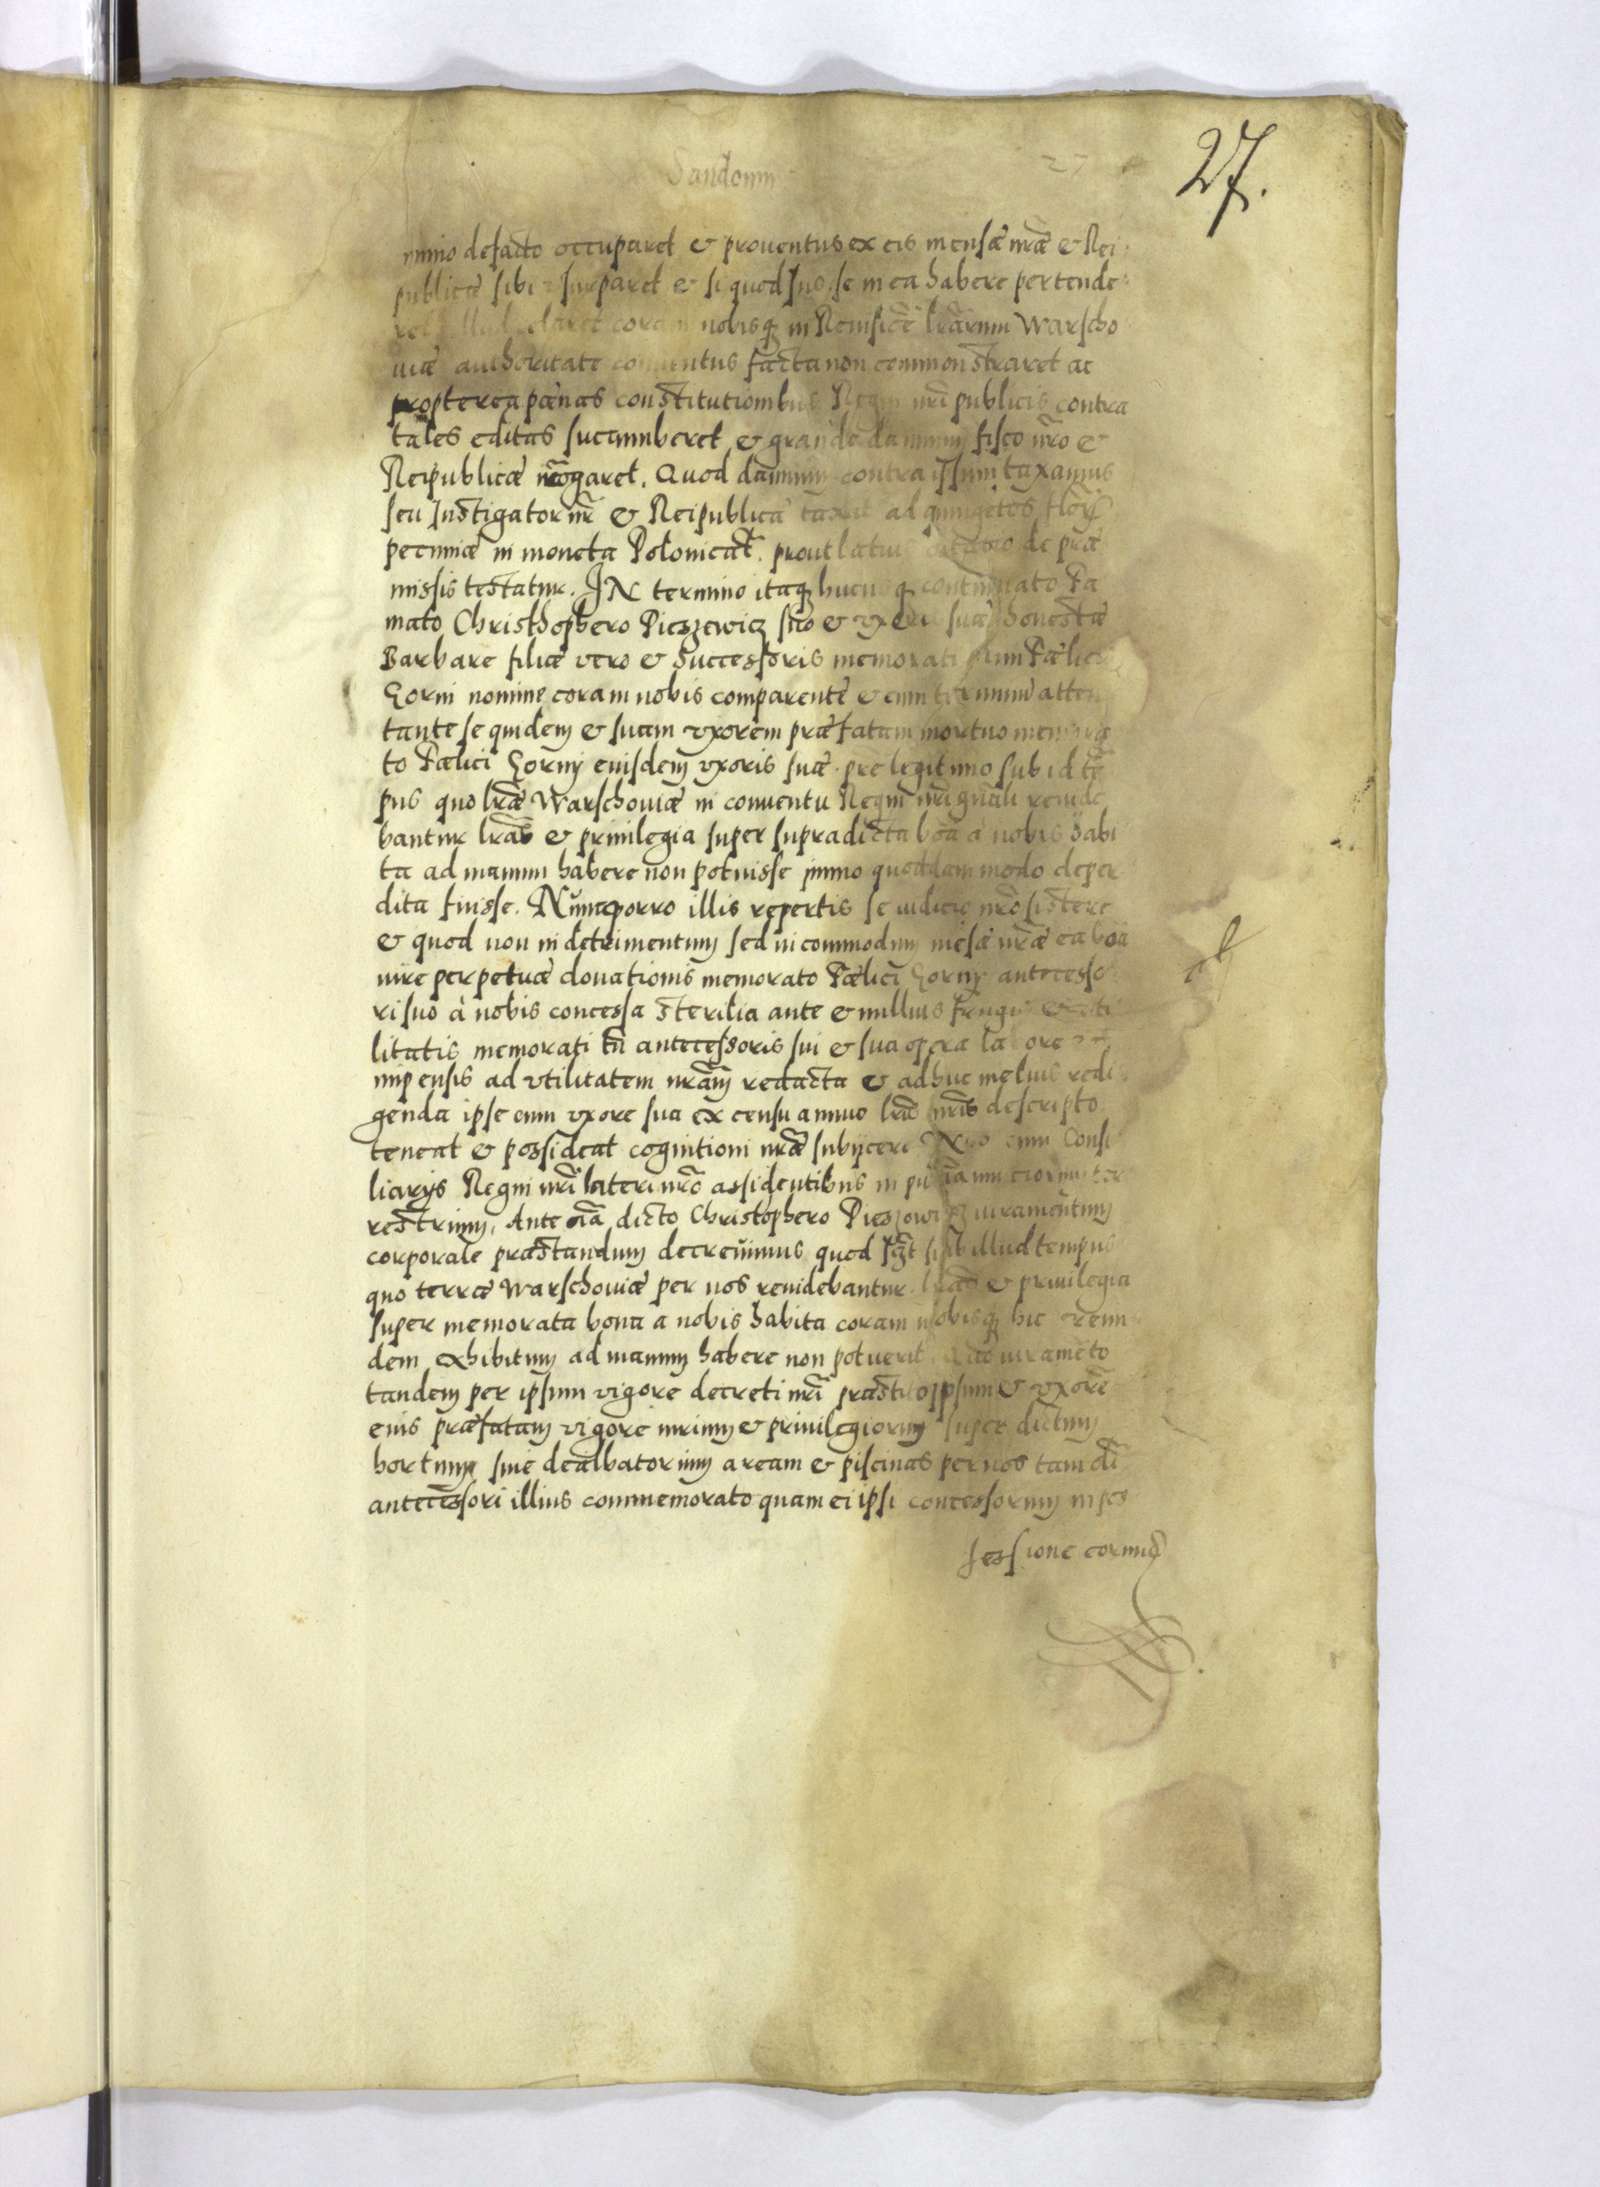 Sandomi
27
27.
mino defacto occuparet & prouentus ex eis mensæ nr̃æ & Rei
publicæ sibi usurparet & si quod Jus se in ea habere pertende
coram nobisqʒ in Reuisiõe lr̃arum Warscho
uiæ authoritate conuentus facta non commonstraret ac
propterea pœnas constitutionibus Regni nr̃i publicis contra
tales editas sucumberet & grande damnum fisco nr̃o &
Reipublicæ irrogaret. Quod damnum contra ipsum taxamus
seu Instigator nr̃ & Reipublicæ taxat ad quingētos florē
pecuniæ in moneta Polonicat̃. prout latius citatio de præ
missis testatur. IN termino itaqʒ hucusqʒ continuato Fa
mato Christhophero Pieszewicz suo & vxoris suæ honestæ
Barbare filiæ vero & Successoris memorati Fœlici
Gorni nomine coram nobis comparentẽ & cum terminũ atten
tante se quidem & suam vxorem præfatam mortuo memora
to Fœlici Gorny eiusdem vxoris suæ prẽ legitimo sub id tẽ
pus quo lr̃æ Warschouiæ in conuentu Regni nr̃i gñali reuide
bantur lr̃as & priuilegia super supradicta bõa à nobis habi
ta ad manum habere non potuisse immo quodammodo deper
dita fuisse. Nunc porro illis repertis se iudicio nr̃o sistere
& quod non in detrimentum sed in commodum mẽsæ nr̃æ ea bõa
iure perpetuæ donationis memorato Fœlici Gorny antecesso
ri suo à nobis concessa sterilia ante & nullius frugis & uti
litatis memorati tñ antecessoris sui & sua opera labore &
impensis ad vtilitatem nr̃am redacta & adhuc melius redi
genda ipse cum vxore sua ex censu annuo lr̃is nr̃is descripto
teneat & possideat cognitioni nr̃æ subijcere Nos cum Consi
liarijs Regni nr̃i lateri nr̃o assidentibus
restrium. Ante oĩa dicto Christophero Pieszowicz iuramentum
corporale præstandum decreuimus quod sczt sub illud tempus
quo terræ Warschouiæ per nos reuidebantur lr̃as & priuilegia
super memorata bona a nobis habita coram nobisqʒ hic
dem exhibitum ad manum habere non potuerit. Quo iuramẽto
tandem per ipsum vigore decreti nr̃i præstito ipsum & vxorẽ
eius præfatam vigore iurium & priuilegiorum super dictum
hortum siue dealbatorium aream & piscinas per nos tam dĩ
antecessori illius commemorato quam ei ipsi concessorum in pos
sessione eorum